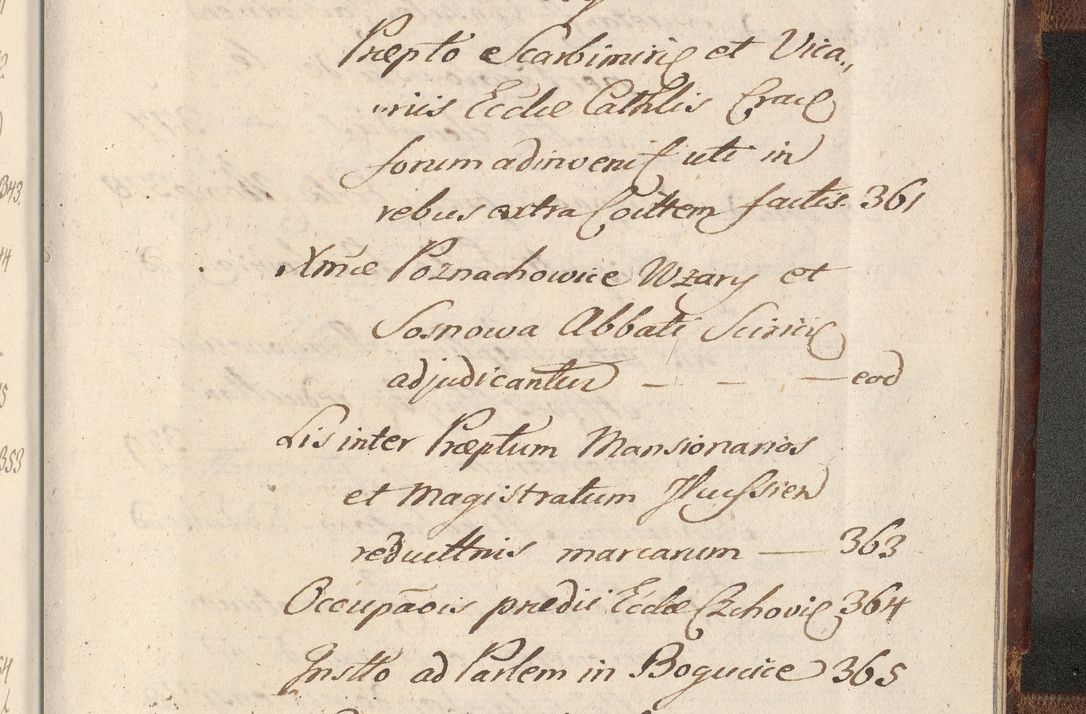 Præpto Scarbimirie et Vica„
riis Ecclæ Cathlis Crac
forum adinvenis uti in
rebus extra Coittem factis 361
Xmæ Poznachowice Wzary et
Sosnowa Abbati Sciric
adjudicantur — — — eod
Lis inter Præptum Mansionarios
et Magistratum Ilkussien
reducttnis marcarum — 363
Occupãois prædii Ecclæ Czchovie 364
Instto ad Parlem in Bogucice 365
343
353